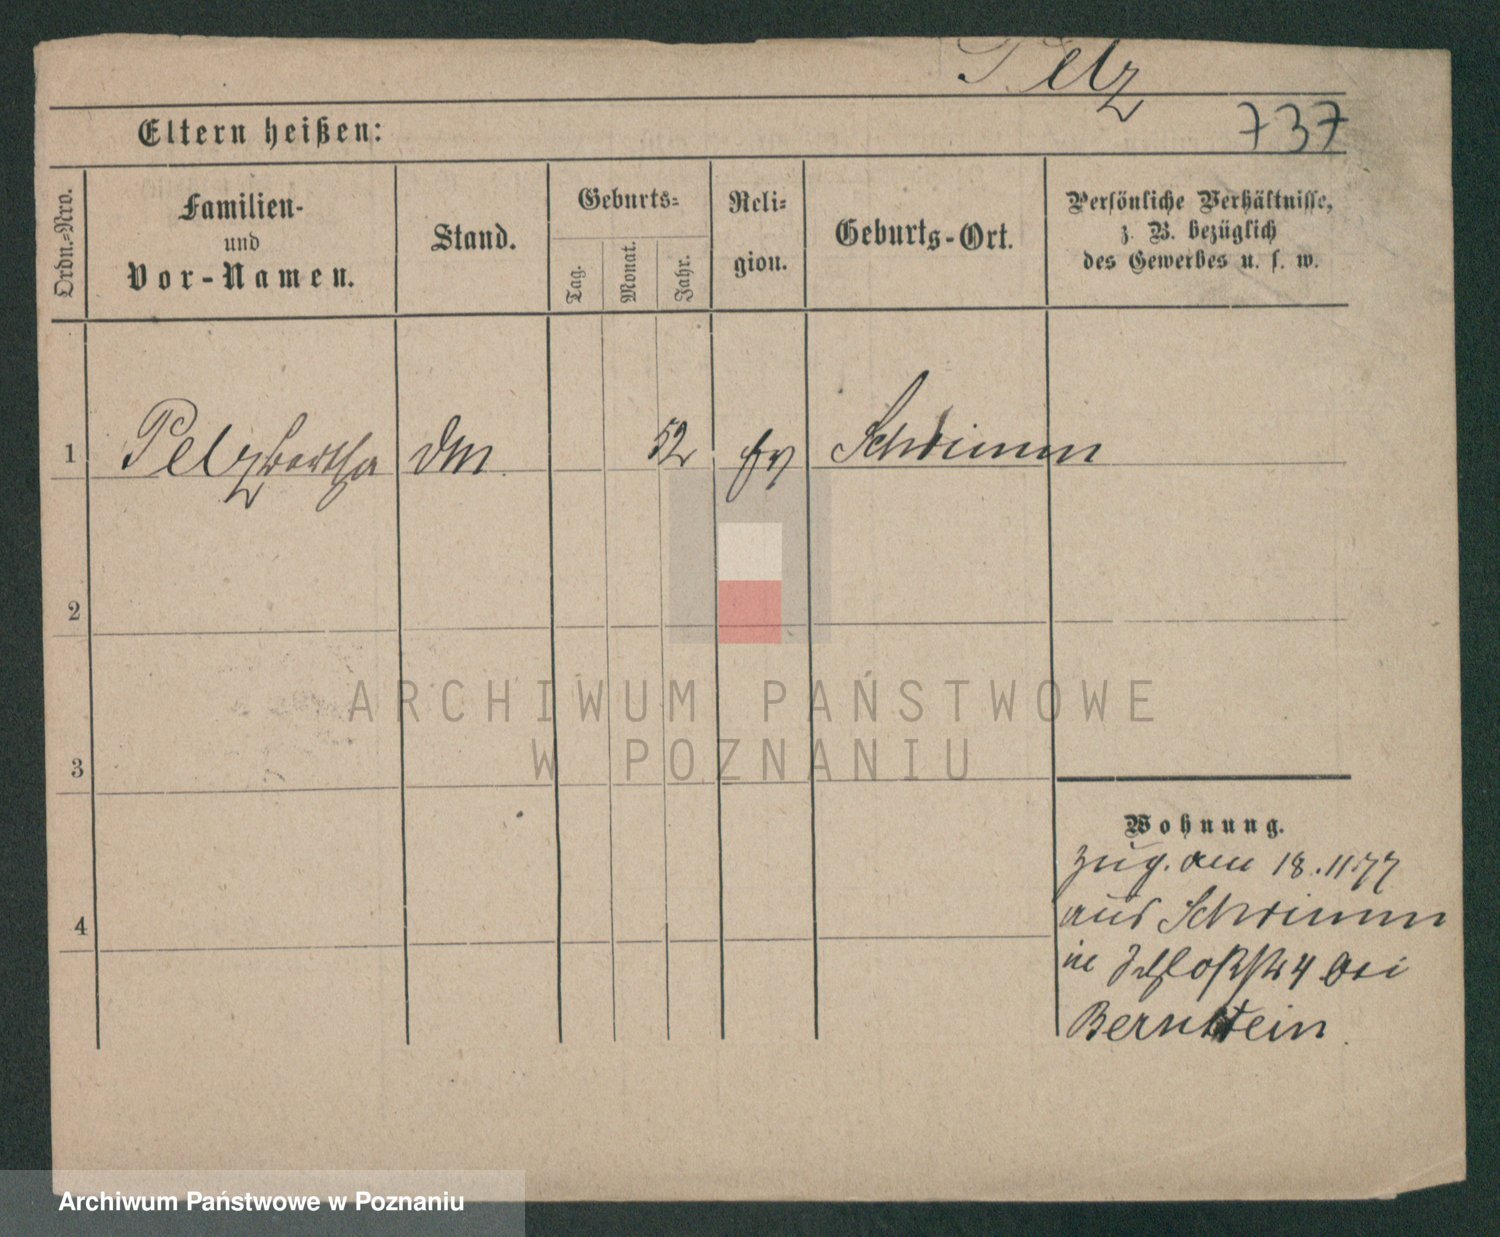 Pelz
Eltern heißen:
737
Ordn.=Nro.
Familien-
und
Vor-Namen.
Stand.
Geburts=
Tag.
Monat.
Jahr.
Reli=
gion.
Geburts-Ort.
Persönliche Verhältnisse,
z. B. bezüglich
des Gewerbes u. s. w.
1 Pelz Bertha 52 Schrimm
2
3
4
Wohnung.
zug. am 18.11.77
aus Schrimm
in Schloßstr 4 bei
Bernstein
ARCHIWUM PAŃSTWOWE
W POZNANIU
Archiwum Państwowe w Poznaniu